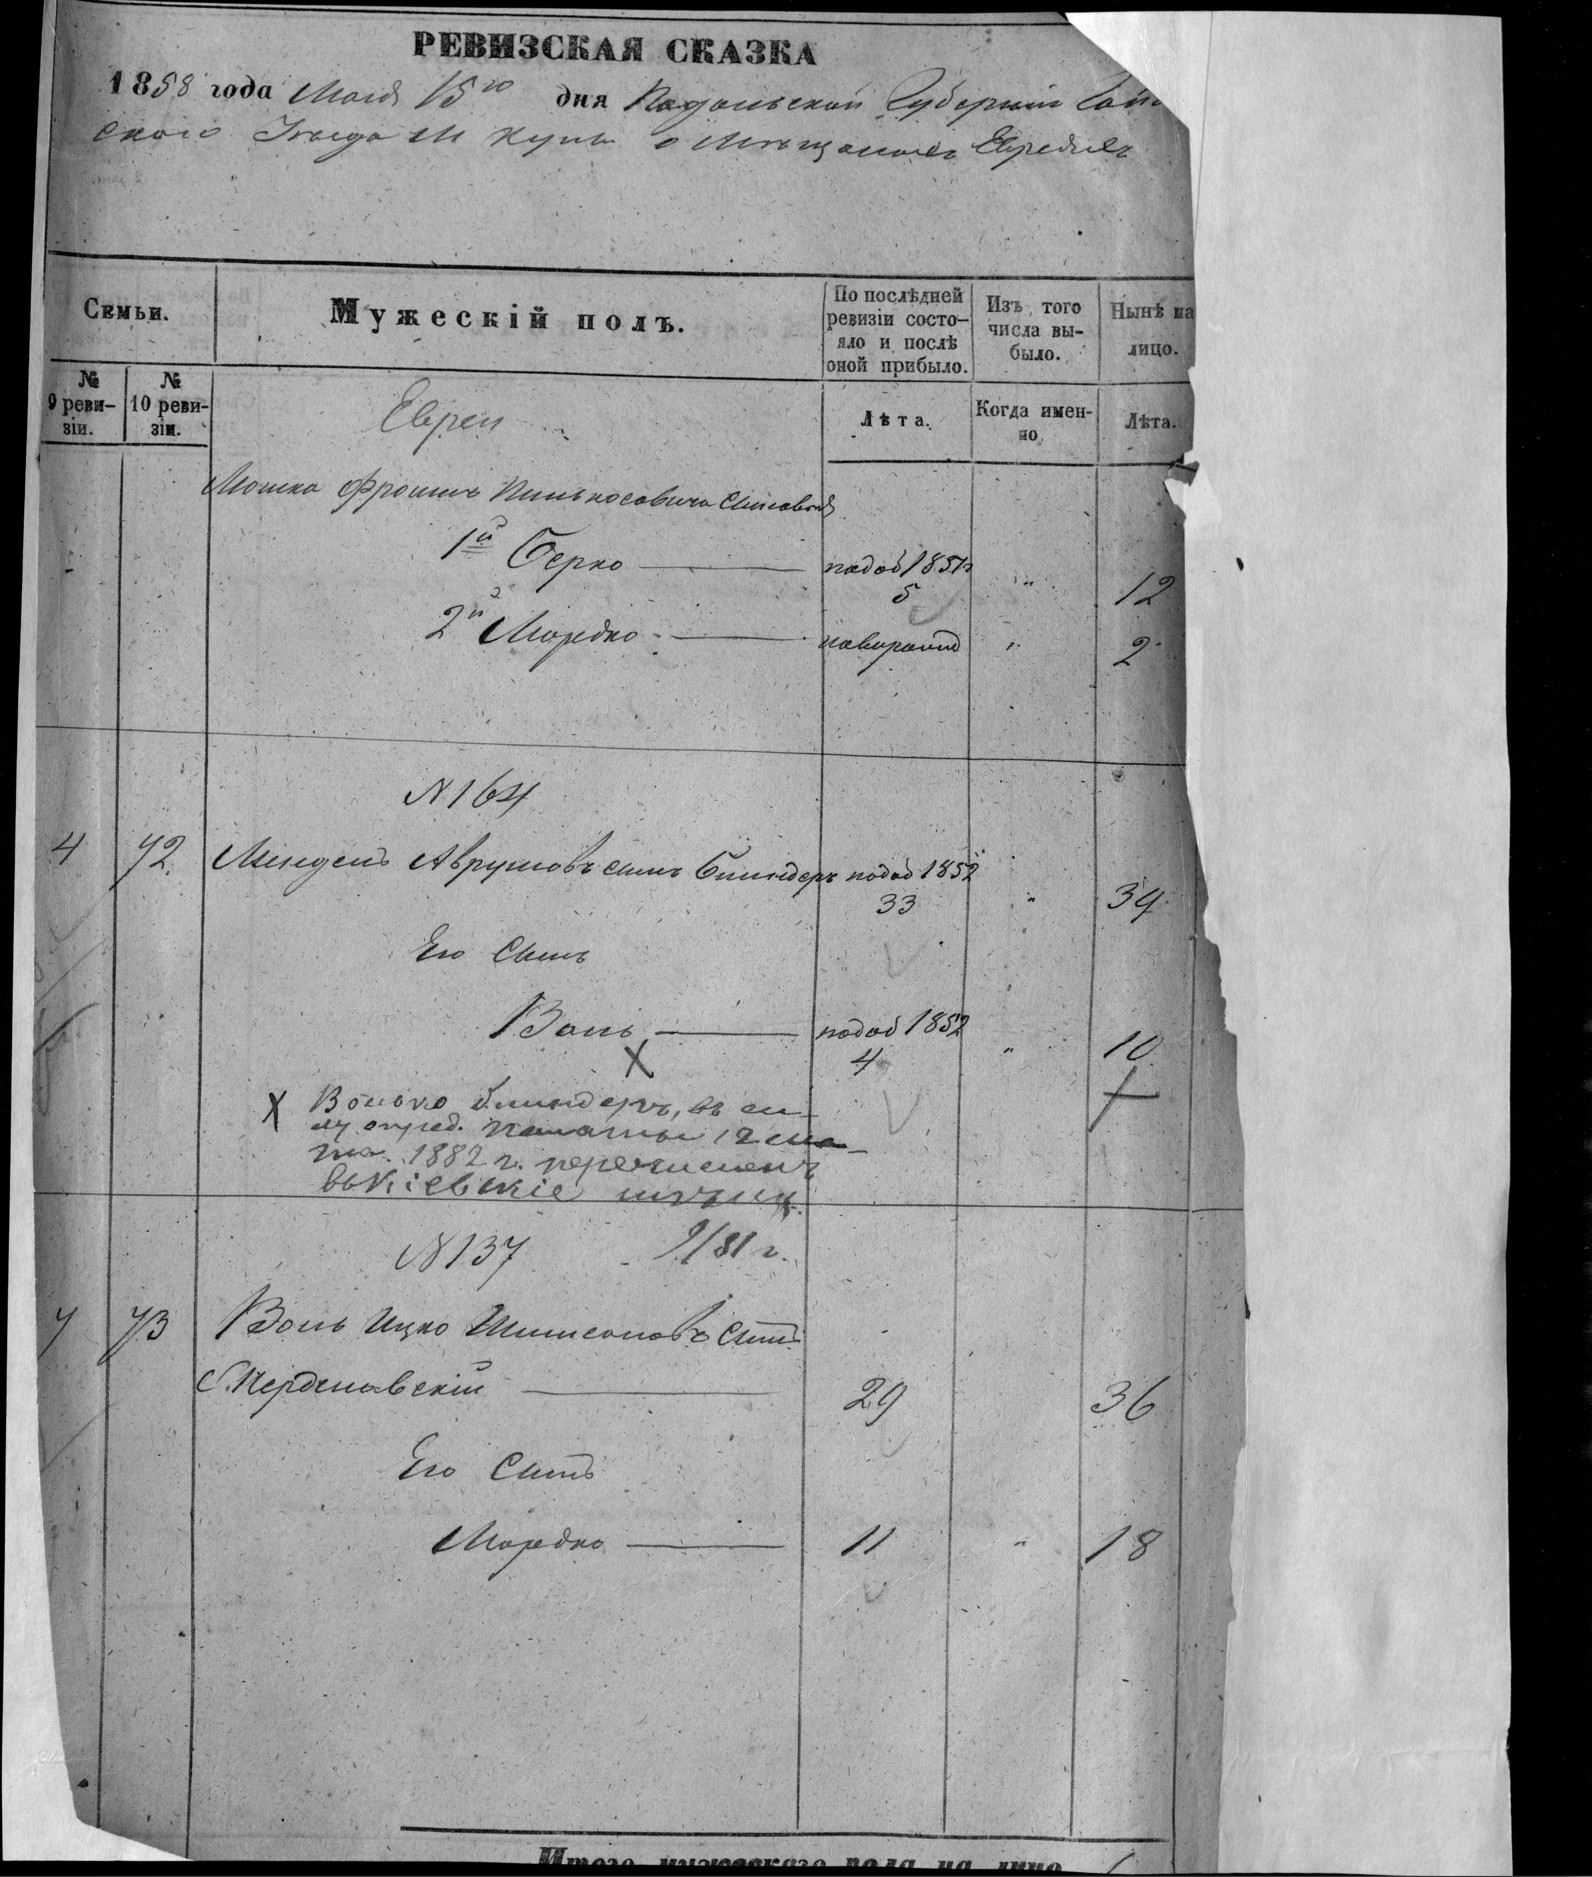 РЕВИЗСКАЯ СКАЗКА
1858 года Маія 15го дня Подольской Губерніи
ского Уезда М Купи о Мѣщанахъ Евреяхъ
Семьи.
Мужескій полъ.
По послѣдней ревизіи состо-
яло и послѣ
оной прибыло.
Изъ того
числа вы-
было.
Нынѣ на
лицо.
№
9 реви-
зіи.
№
10 реви-
зіи.
Евреи
Лѣта.
Когда имен-
но
Лѣта.
Мошка Фроима Пинькосовича Сыновья
1й Берко подоб 1851г 5 " 12
2й Мордко новорожд " 2
N 164
4 72. Мендель Аврумовъ сынъ Блиндеръ подоб 1852 33 " 39
Его Сынъ
Воль подоб 1852 4 " 10
X
X Волько Блиндеръ, въ си-
лу опред. палаты 12 ма-
та. 1882 г. перечисленъ
въ Кіевскіе мѣщ.
N 137 9/81 г.
7 73 Воль Ицко Шимсоновъ Сынъ
29 36
Его Сынъ
Мордко 11 " 18
Итого мужескаго пола на лицо